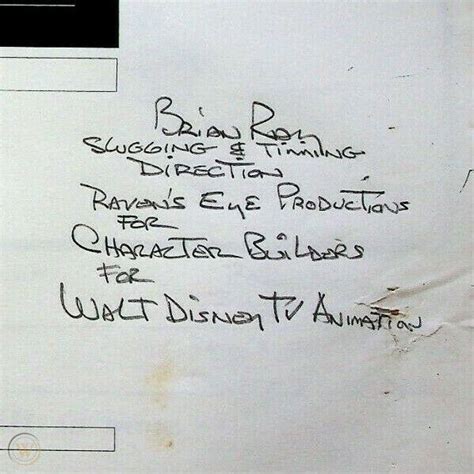 Brian Ray
Slugging & Timming
Direction
Raven's Eye Productions
for
Character Builders
for
Walt Disney TV Animation
W